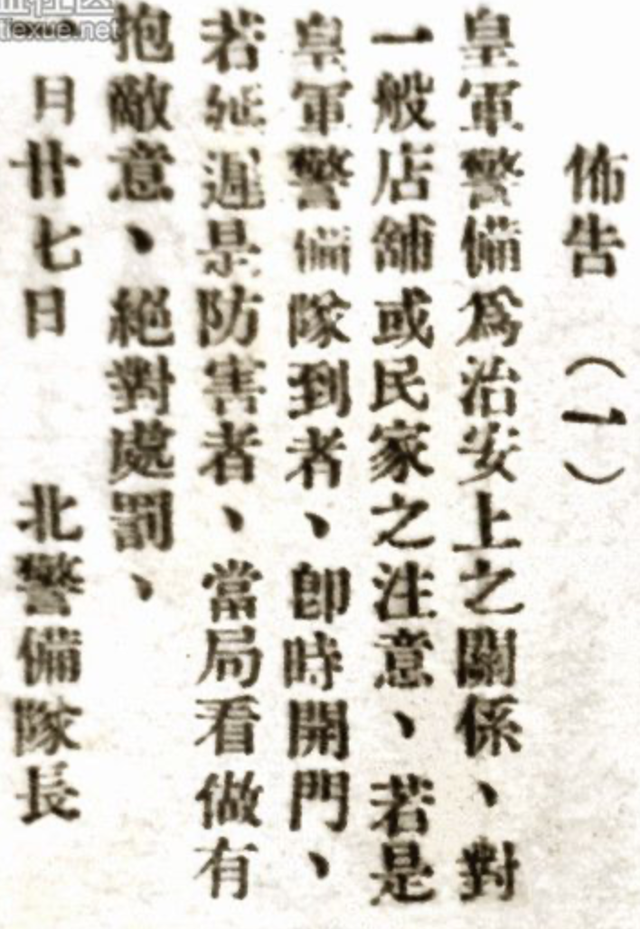 佈告（一）
皇軍警備爲治安上之關係、對
一般店舖或民家之注意、若是
皇軍警備隊到者、卽時開門、
若延遲是防害者、當局看做有
抱敵意、絕對處罰、
月廿七日　北警備隊長
tiexue.net